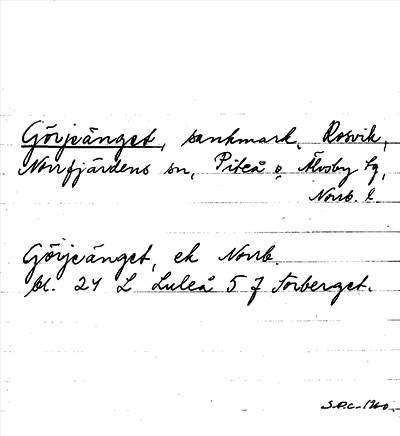 Görjeänget, sankmark, Rosvik,
Norrfjärdens sn, Piteå o Älvsby tg,
Norrb. l.
Görjeänget, ek Norrb.
bl. 24 L Luleå 5 f Torberget.
S.O.C. 1960.